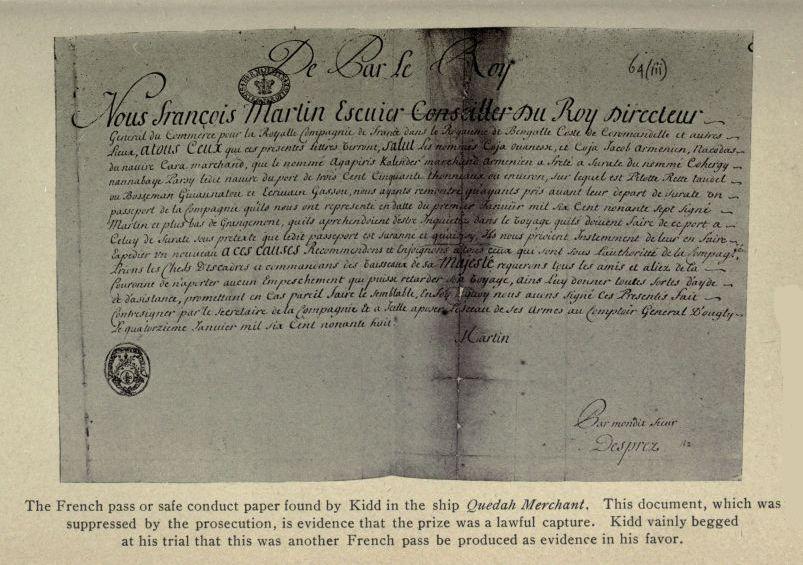 De Par Le Roy
64 (iii)
Nous François Martin Escuier Conseiller Du Roy Directeur
General du Commerce pour la Royalle Compagnie de France dans le Royaume de Bengalle Coste de Coromandelle et autres
Lieux, atous Ceux qui ces presentes lettres verront, Salut Les nommés Coja Ouanesse, et Coja Jacob Armenien, Nacodas
du navire Cara marchand, que le nommé Agapiris Kalender marchand Armenien a freté a Surate du nommé Cohergy
nannabaye Parsy ledit navire du port de trois Cent Cinquante thonneaux ou environ, sur lequel est Pilotte Rette
ou Bosseman et Ecrivain Gassou, nous ayants remontré quayants pris avant leur depart de Surate un
passeport de la Compagnie quils nous ont representé en datte du premier Janvier mil six Cent nonante sept signé
Martin et plus bas de Grangemont, quils aprehendoient destre Inquietez dans le voyage quils doivent faire de ce port a
Celuy de Surate sous pretexte que ledit passeport est suranné et quainsy, Ils nous prient Instemment de leur en faire
Expedier un nouveau a ces causes Recommendons et Enjoignons a tous ceux qui sont sous L'authorité de la Compag.
Prions les Chefs Descadres et commandans des Vaisseaux de sa Majesté requerons tous les amis et aliez de la
Couronne de naporter aucun Empeschement qui puisse retarder son Voyage, ains Luy donner toutes sortes dayde
et dasistance, promettant en Cas pareil faire le semblable, En foy dequoy nous avons signé Ces Presentes fait
Contresigner par le Secretaire de la Compagnie et a Icelle aposer le sceau de ses Armes au Comptoir General D'ougly
Le quatorzieme Janvier mil six Cent nonante huit
Martin
Par mondit sieur
Desprez
The French pass or safe conduct paper found by Kidd in the ship Quedah Merchant. This document, which was
suppressed by the prosecution, is evidence that the prize was a lawful capture. Kidd vainly begged
at his trial that this was another French pass be produced as evidence in his favor.